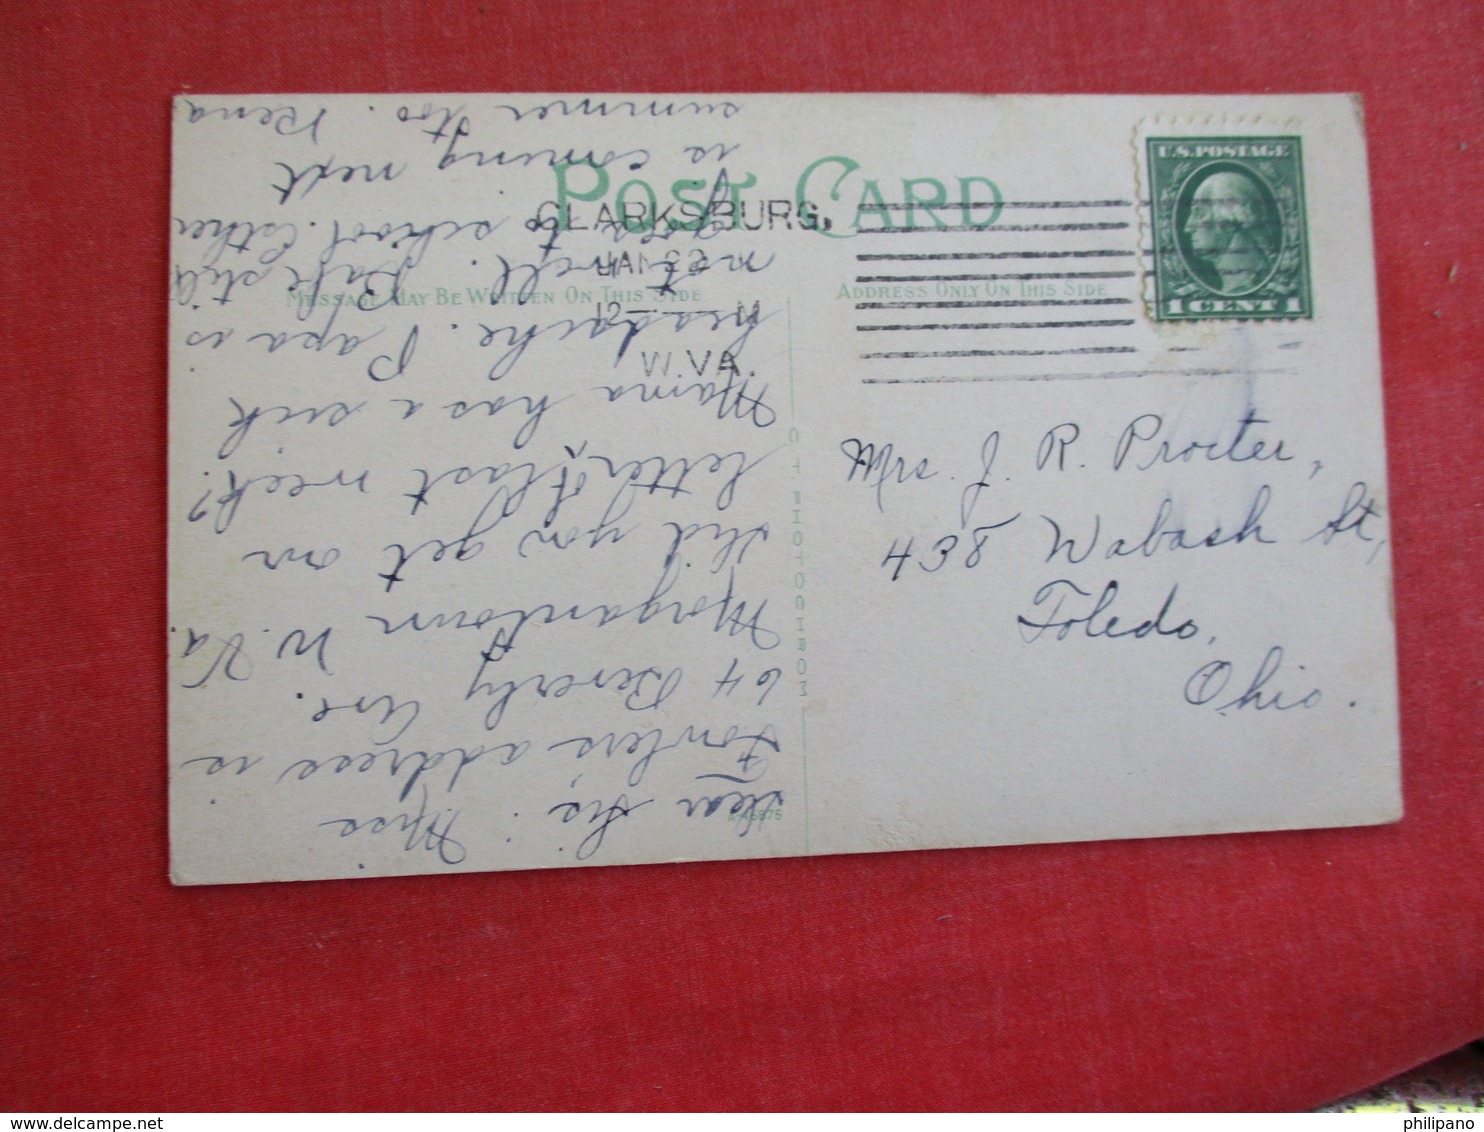 POST CARD
CLARKSBURG,
JAN 22
12 — M
W. VA.
MESSAGE MAY BE WRITTEN ON THIS SIDE
ADDRESS ONLY ON THIS SIDE
U.S. POSTAGE
1 CENT 1
C T PHOTOCHROM
Mrs. J. R. Procter,
438 Wabash St,
Toledo,
Ohio.
Dear Sis: Miss
Fowlers address is
64 Beverly Ave.
Morgantown W. Va.
Did you get our
letter of last week?
Mama has a sick
headache. Papa is
not well. Babe still
goes to school. Esther
is coming next
summer too. Rena
philipano